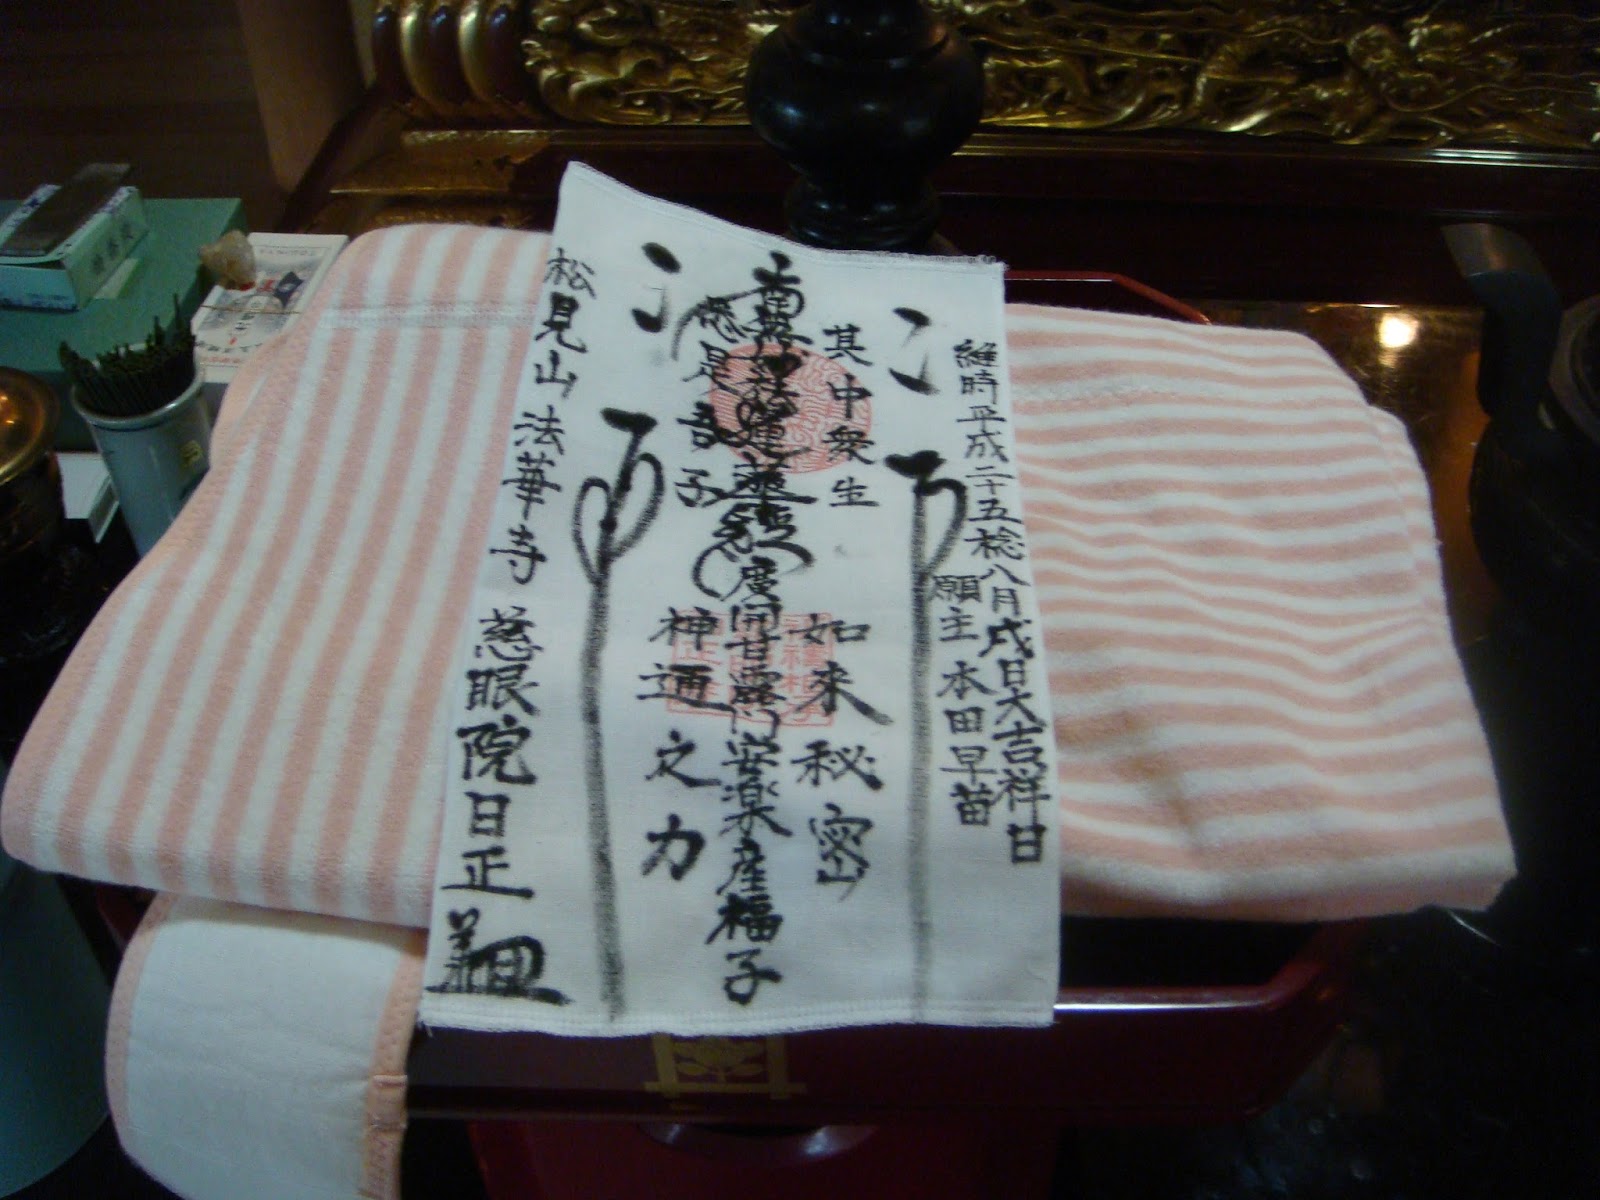 維時平成二十五稔八月戌日大吉祥日
願主 本田早苗
其中衆生
如来秘密
南無妙法蓮華経
廣開甘露門安楽産福子
悉是吾子
神通之力
松見山 法華寺 慈眼院日正